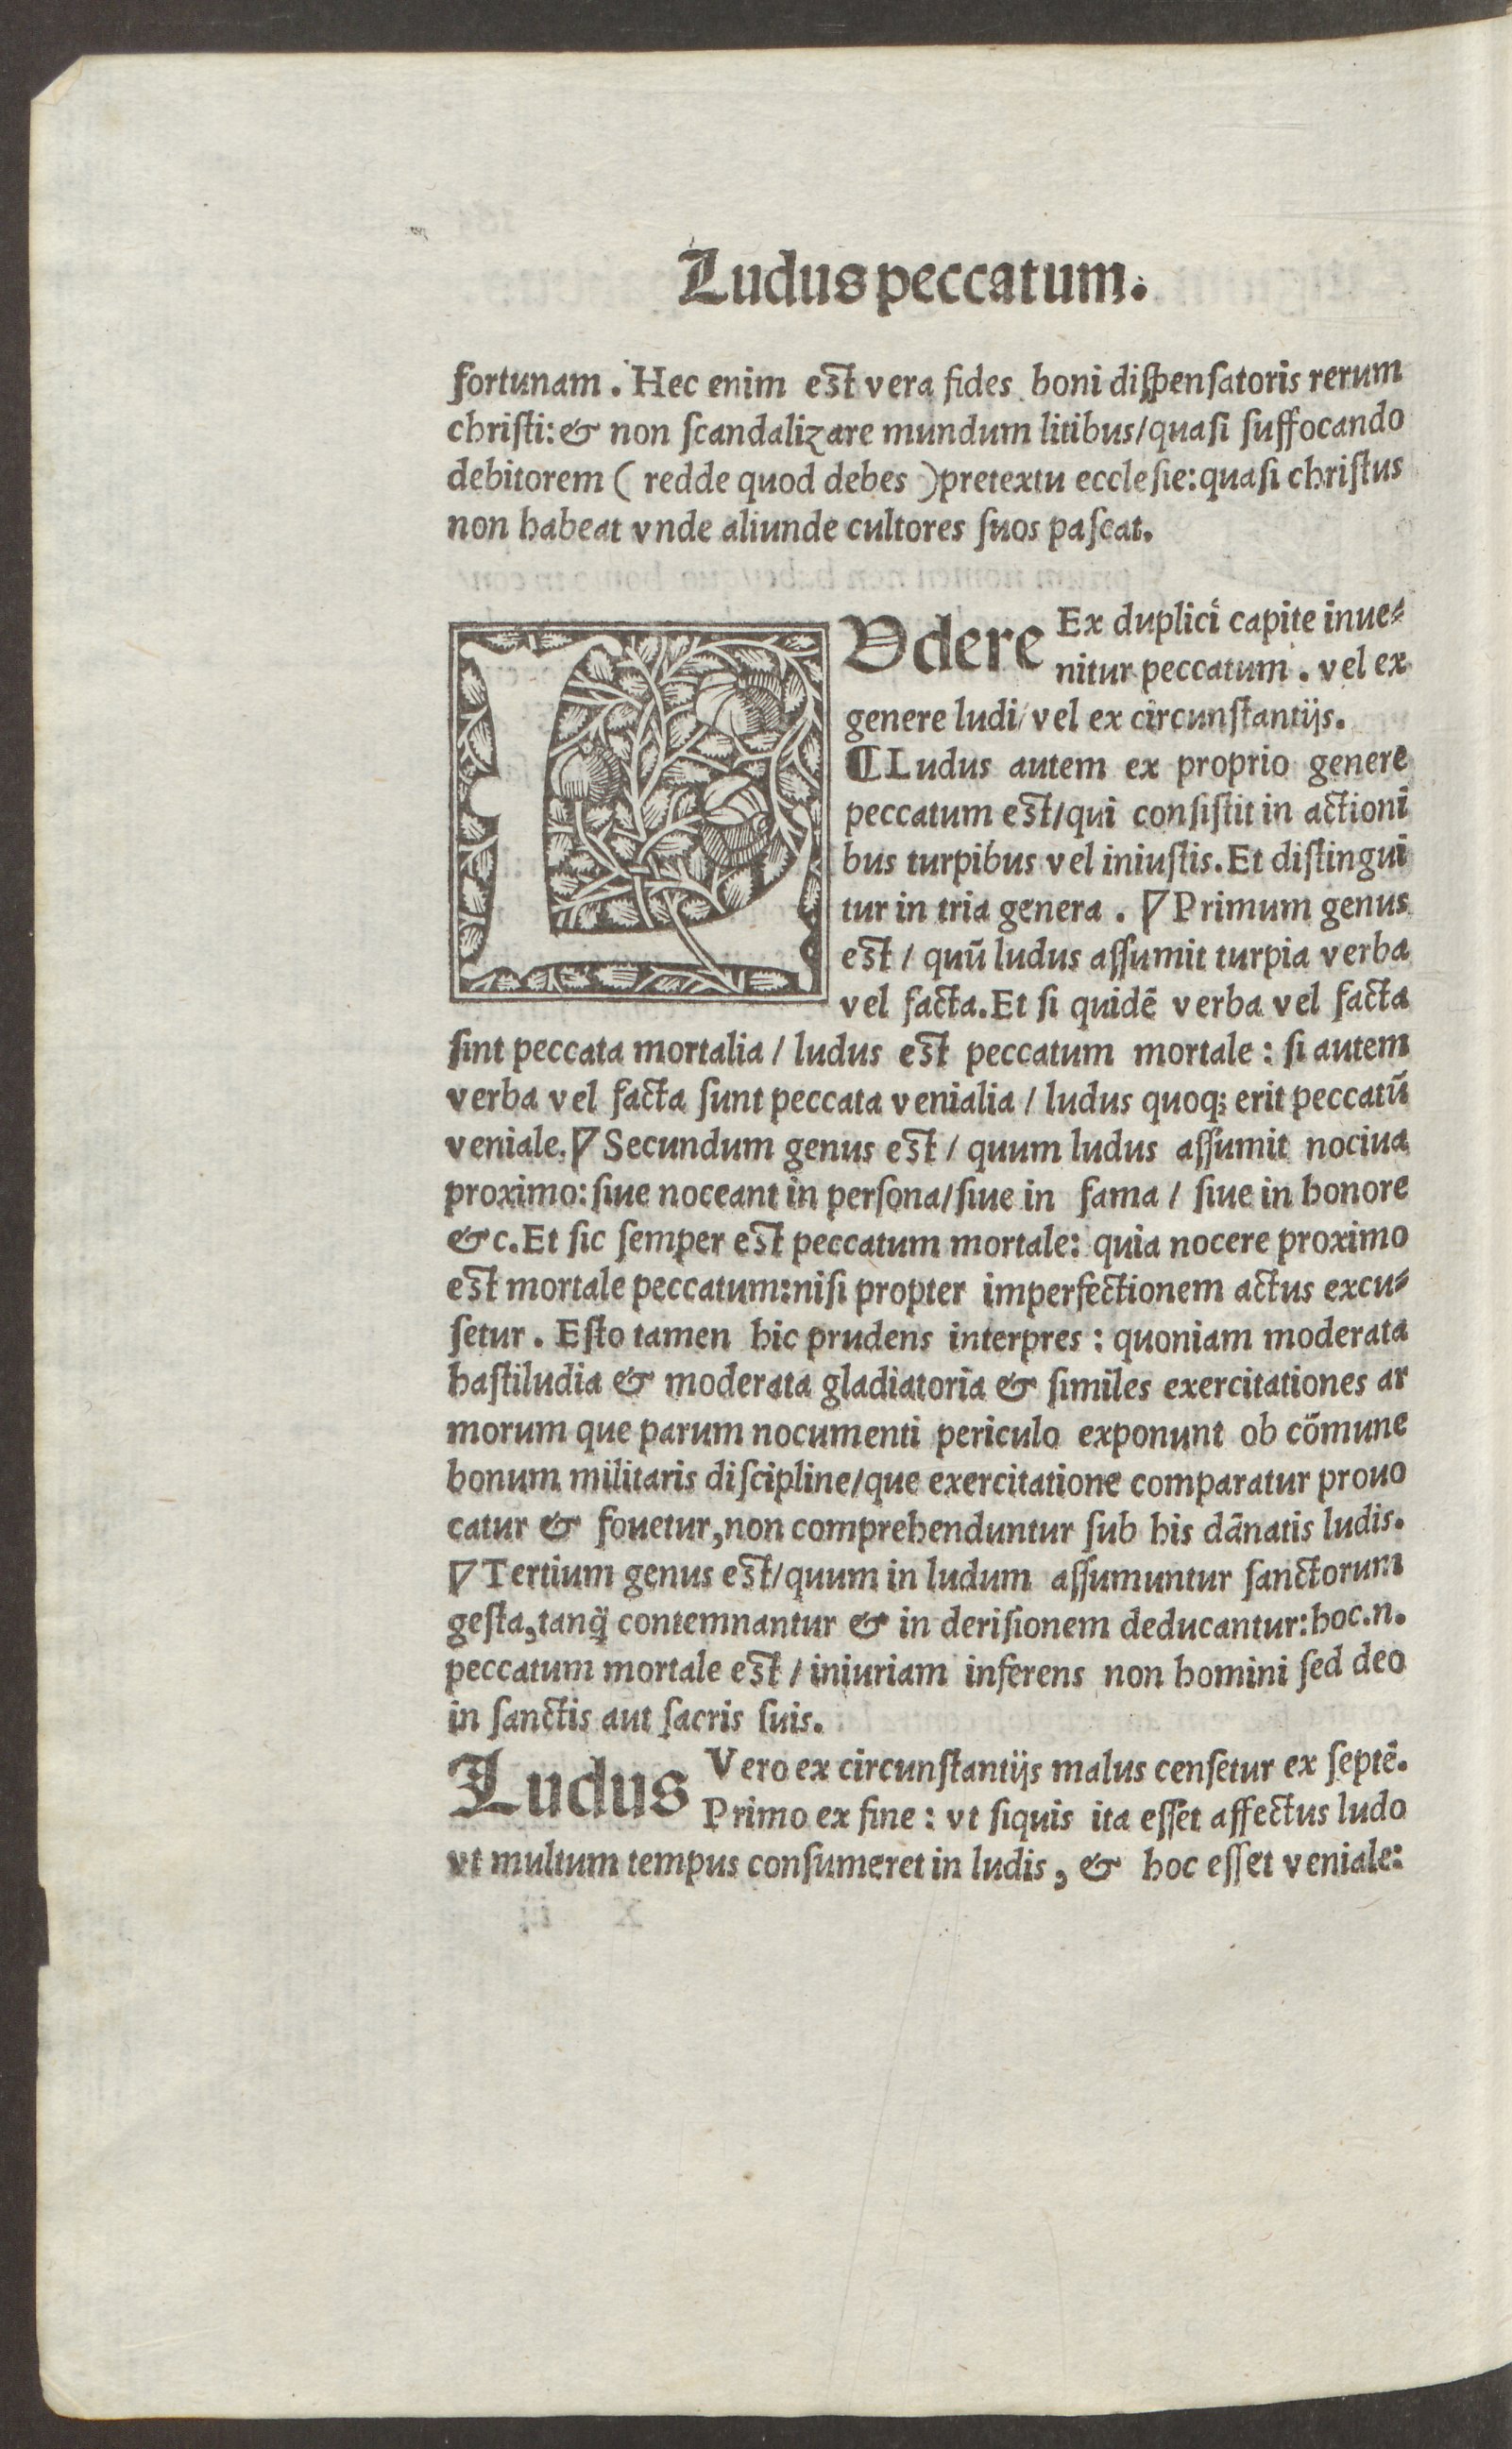 Ludus peccatum.
fortunam. Hec enim est vera fides boni dispensatoris rerum
christi: & non scandalizare mundum litibus/quasi suffocando
debitorem ( redde quod debes )pretextu ecclesie:quasi christus
non habeat vnde aliunde cultores suos pascat.
LVdere Ex duplici capite inue⸗
nitur peccatum. vel ex
genere ludi/vel ex circunstantijs.
¶Ludus autem ex proprio genere
peccatum est/qui consistit in actioni
bus turpibus vel iniustis. Et distingui
tur in tria genera. ∇Primum genus
est / quū ludus assumit turpia verba
vel facta. Et si quidē verba vel facta
sint peccata mortalia / ludus est peccatum mortale: si autem
verba vel facta sunt peccata venialia / ludus quoq; erit peccatū
veniale.∇Secundum genus est / quum ludus assumit nociua
proximo: siue noceant in persona/siue in fama / siue in honore
&c. Et sic semper est peccatum mortale: quia nocere proximo
est mortale peccatum:nisi propter imperfectionem actus excu⸗
setur. Esto tamen hic prudens interpres: quoniam moderata
hastiludia & moderata gladiatoria & similes exercitationes ar
morum que parum nocumenti periculo exponunt ob cōmune
bonum militaris discipline/que exercitatione comparatur prouo
catur & fouetur,non comprehenduntur sub his dānatis ludis.
∇Tertium genus est/quum in ludum assumuntur sanctorum
gesta,tanq̄ contemnantur & in derisionem deducantur:hoc.n.
peccatum mortale est / iniuriam inferens non homini sed deo
in sanctis aut sacris suis.
Ludus Vero ex circunstantijs malus censetur ex septē.
Primo ex fine: vt siquis ita esset affectus ludo
vt multum tempus consumeret in ludis, & hoc esset veniale: